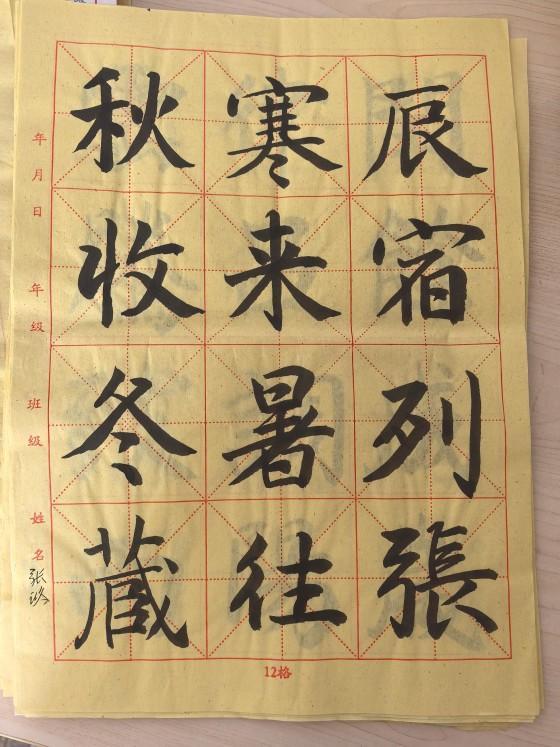 辰宿列張
寒来暑往
秋收冬蔵
年月日
年级
班级
姓名
12格